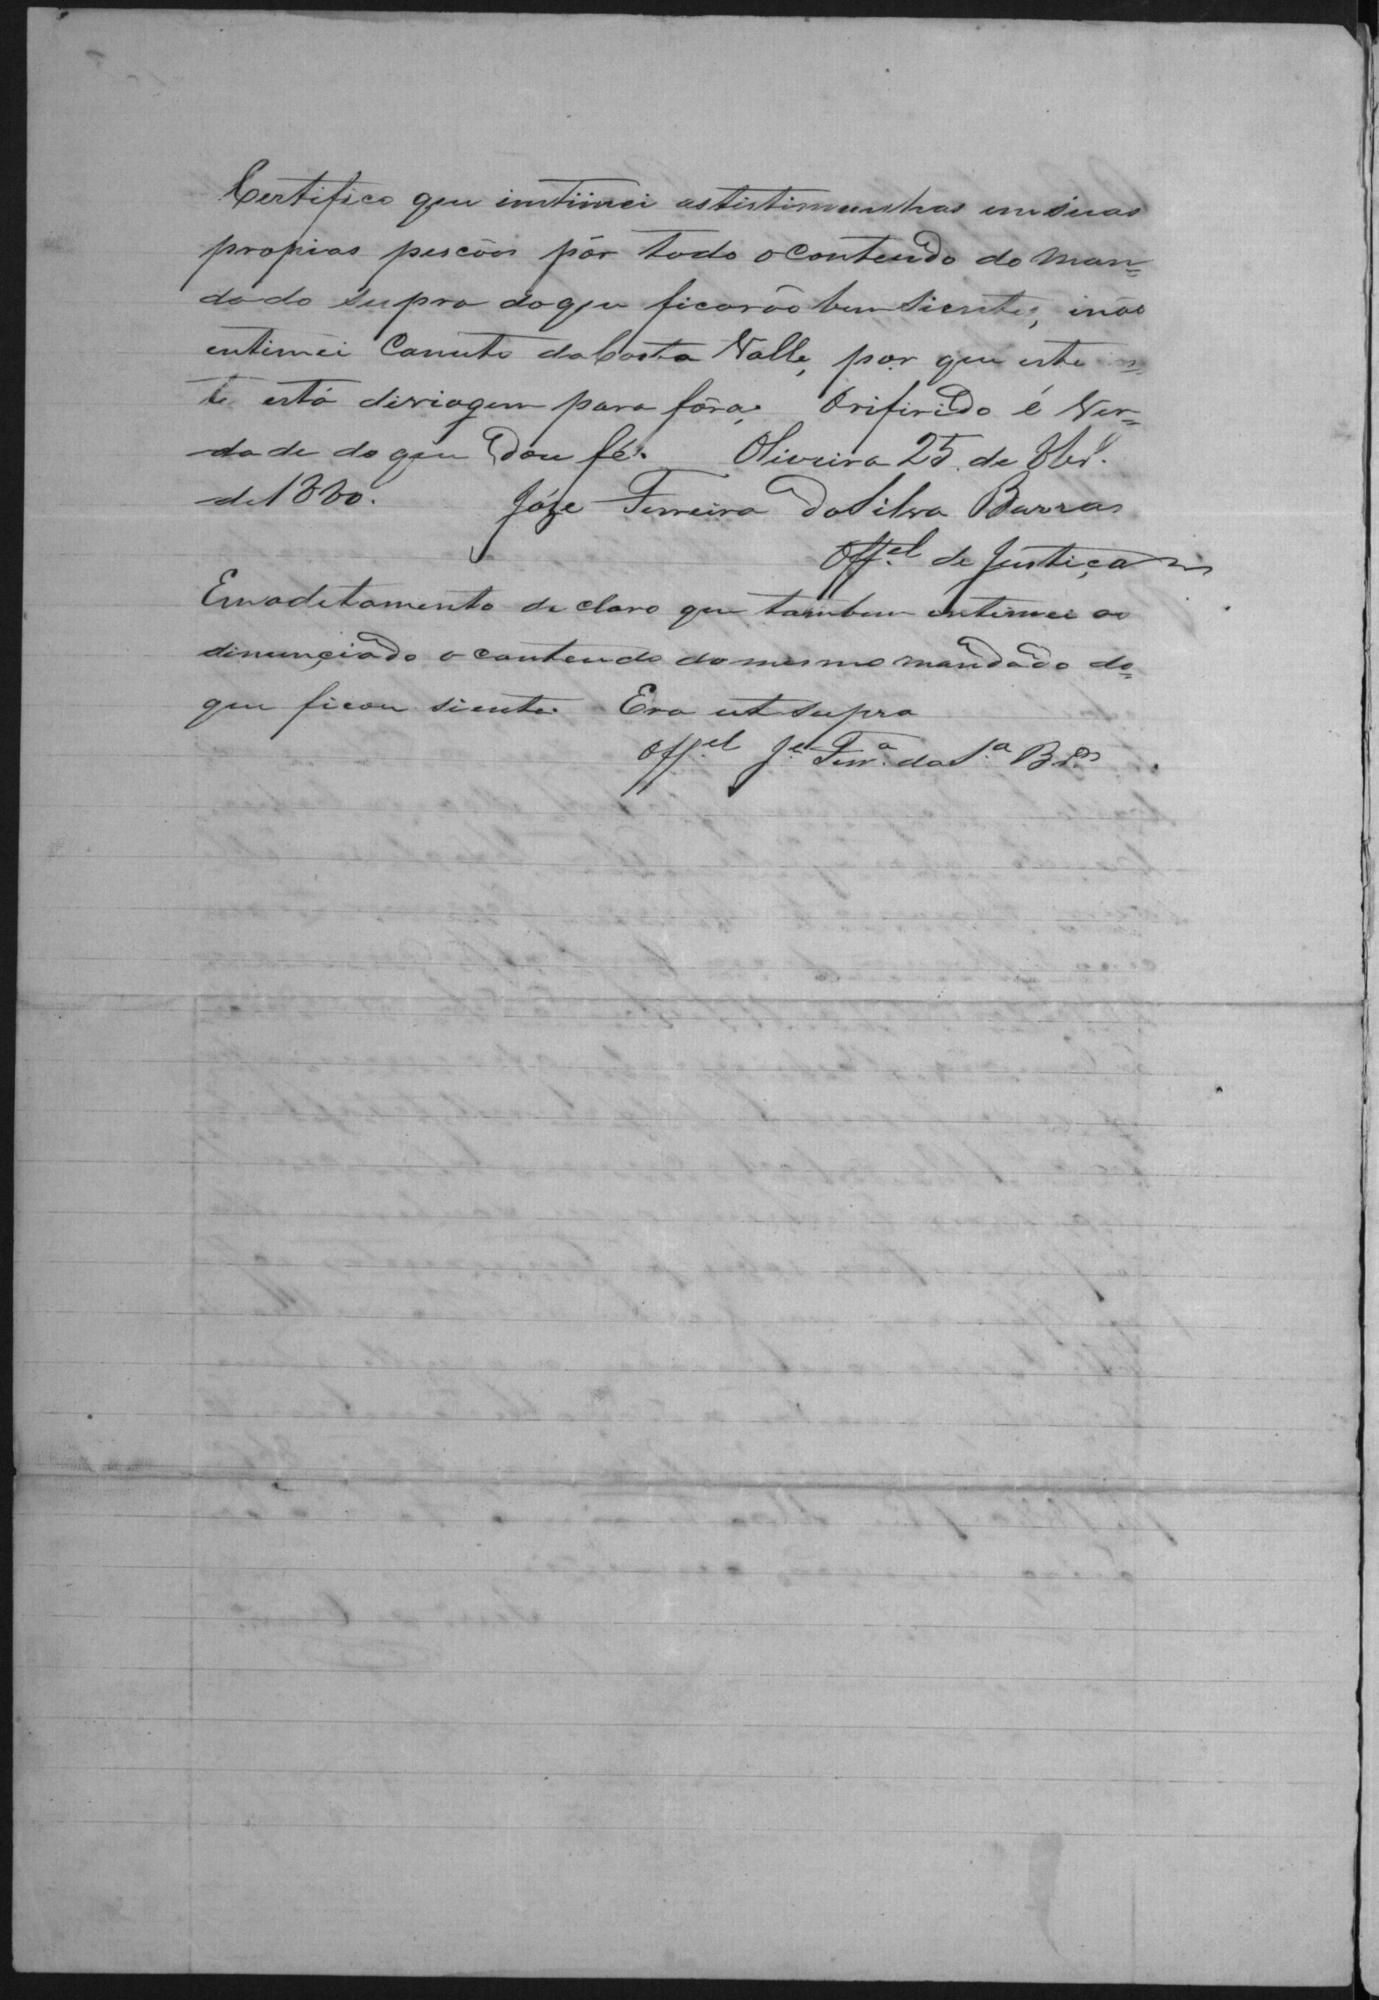 Certifico que imtimei as tistimunhas em suas
propias pescôas pôr todo o Contendo do man=
dado supra do que ficarão bem siente, inão
entimei Canuto da Costa Valle, por que este
te está diviagem para fóra, O rifirido é Ver=
dade do que Dou fé. Oliveira 25 de 8br.
de 1880. Józe Ferreira da Silva Barros
Off.el de Justiça
Em aditamento declaro que tambem intimei ao
dinunçiado o contendo do mesmo mandado do=
que ficou siente. Era ut supra
Off.el J.e Ferr.a da S.a B.ros